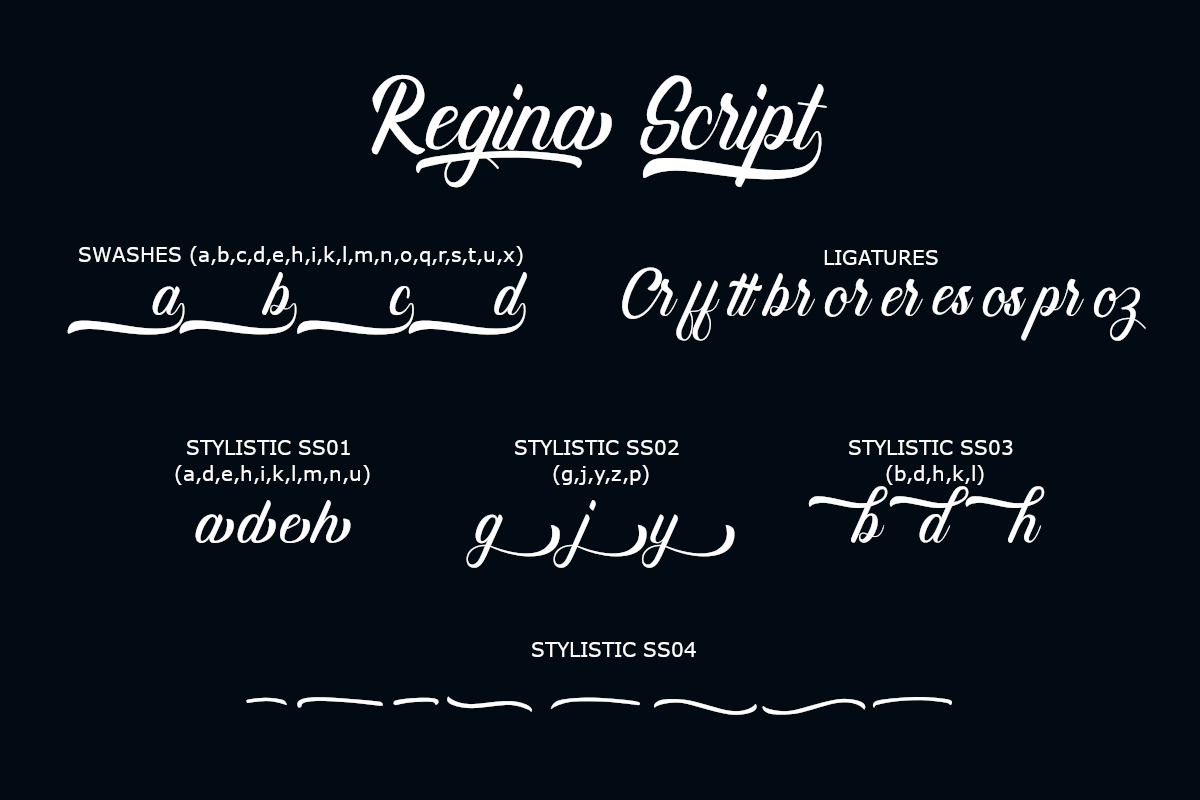 Regina Script
SWASHES (a,b,c,d,e,h,i,k,l,m,n,o,q,r,s,t,u,x)
a b c d
LIGATURES
Cr ff tt br or er es os pr oz
STYLISTIC SS01
(a,d,e,h,i,k,l,m,n,u)
a d e h
STYLISTIC SS02
(g,j,y,z,p)
g j y
STYLISTIC SS03
(b,d,h,k,l)
b d h
STYLISTIC SS04